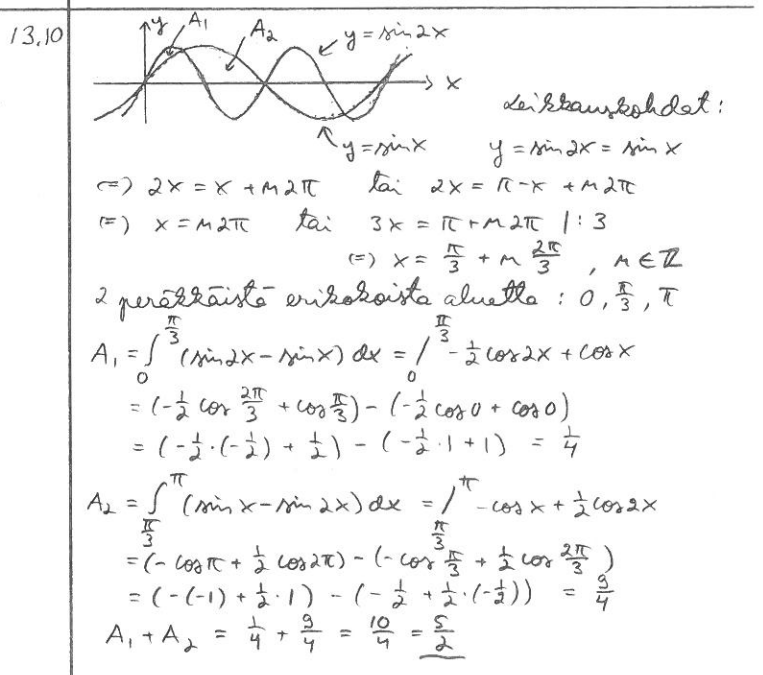 13.10
y A₁ A₂ y = sin 2x
x
y = sin x
Leikkauskohdat:
y = sin 2x = sin x
⇔ 2x = x + n2π tai 2x = π - x + n2π
⇔ x = n2π tai 3x = π + n2π |:3
⇔ x = π/3 + n 2π/3 , n ∈ ℤ
2 peräkkäistä erikokoista aluetta : 0, π/3, π
A₁ = ∫₀^(π/3) (sin 2x - sin x) dx = /₀^(π/3) -1/2 cos 2x + cos x
= (-1/2 cos 2π/3 + cos π/3) - (-1/2 cos 0 + cos 0)
= (-1/2·(-1/2) + 1/2) - (-1/2·1 + 1) = 1/4
A₂ = ∫_(π/3)^π (sin x - sin 2x) dx = /_(π/3)^π -cos x + 1/2 cos 2x
= (-cos π + 1/2 cos 2π) - (-cos π/3 + 1/2 cos 2π/3)
= (-(-1) + 1/2·1) - (-1/2 + 1/2·(-1/2)) = 9/4
A₁ + A₂ = 1/4 + 9/4 = 10/4 = 5/2